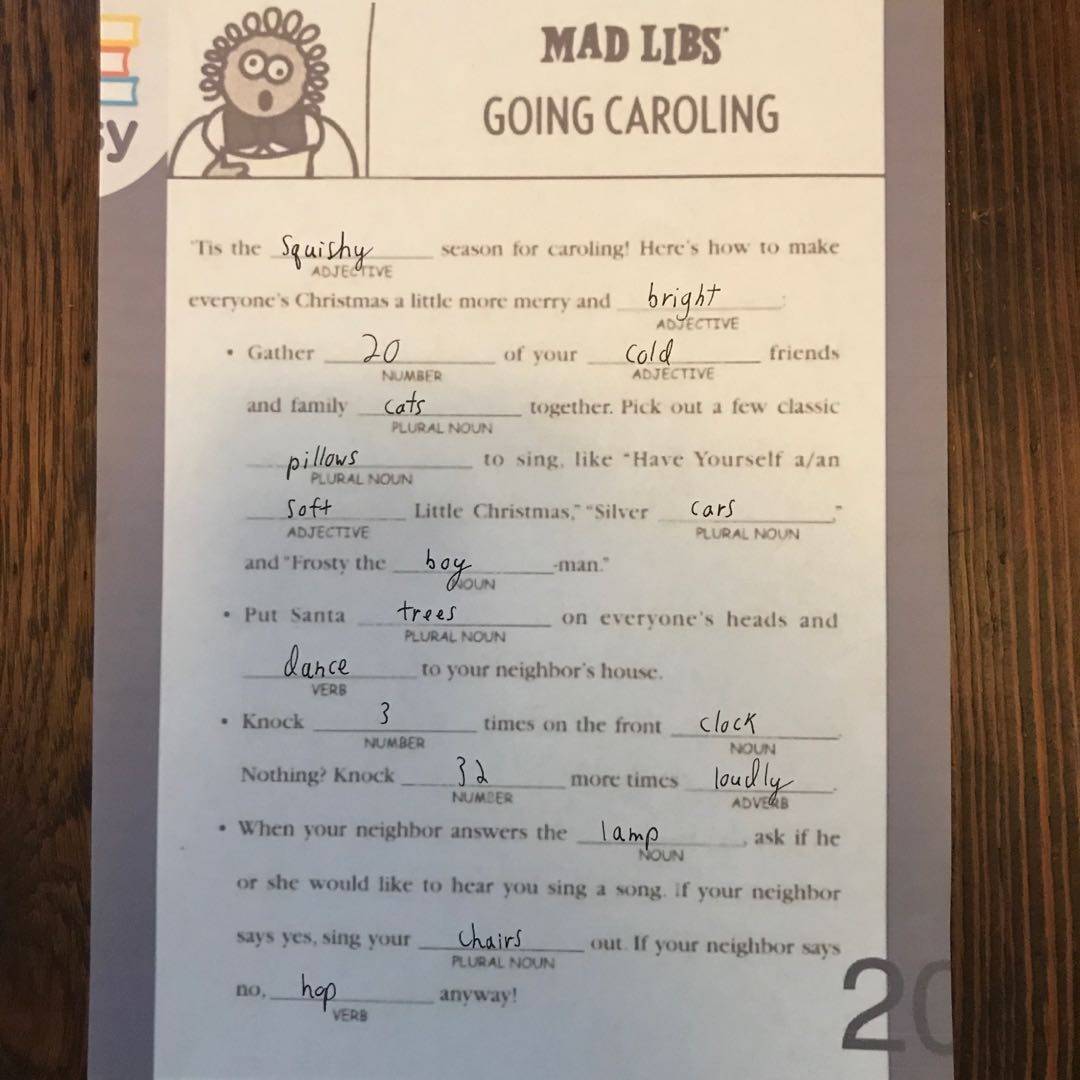 sy
MAD LIBS®
GOING CAROLING
'Tis the Squishy season for caroling! Here's how to make
ADJECTIVE
everyone's Christmas a little more merry and bright:
ADJECTIVE
• Gather 20 of your cold friends
NUMBER ADJECTIVE
and family cats together. Pick out a few classic
PLURAL NOUN
pillows to sing, like "Have Yourself a/an
PLURAL NOUN
Soft Little Christmas," "Silver cars,"
ADJECTIVE PLURAL NOUN
and "Frosty the boy-man."
NOUN
• Put Santa trees on everyone's heads and
PLURAL NOUN
dance to your neighbor's house.
VERB
• Knock 3 times on the front clock.
NUMBER NOUN
Nothing? Knock 32 more times loudly.
NUMBER ADVERB
• When your neighbor answers the lamp, ask if he
NOUN
or she would like to hear you sing a song. If your neighbor
says yes, sing your chairs out. If your neighbor says
PLURAL NOUN
no, hop anyway!
VERB
20